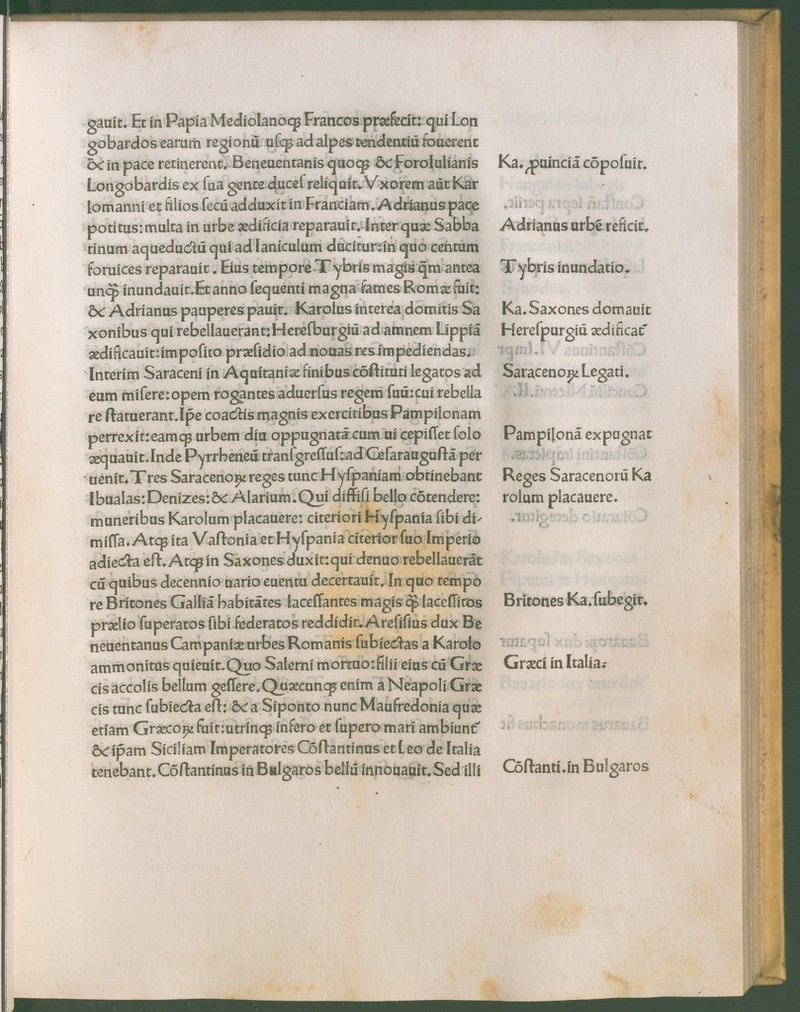 gauit. Et in Papia Mediolanoqꝫ Francos præfecit: qui Lon
gobardos earum regionū uſqꝫ ad alpes tendentiū fouerent
& in pace retinerent. Beneuentanis quoqꝫ & Foroiulianis
Longobardis ex ſua gente duceſ reliquit. Vxorem aūt Kar
lomanni et filios ſecū adduxit in Franciam. Adrianus pace
potitus: multa in urbe ædificia reparauit. Inter quæ Sabba
tinum aqueductū qui ad Ianiculum ducitur: in quo centum
foruices reparauit. Eius tempore Tybris magis q̄m antea
unqꝫ inundauit. Et anno ſequenti magna fames Romæ fuit:
& Adrianus pauperes pauit. Karolus interea domitis Sa
xonibus qui rebellauerant: Hereſburgiū ad amnem Lippiā
ædificauit: impoſito præſidio ad nouas res impediendas.
Interim Saraceni in Aquitaniæ finibus cōſtituti legatos ad
eum miſere: opem rogantes aduerſus regem ſuū: cui rebella
re ſtatuerant. Ip̄e coactis magnis exercitibus Pampilonam
perrexit: eamqꝫ urbem diu oppugnatā cum ui cepiſſet ſolo
æquauit. Inde Pyrrheneū tranſgreſſuſ: ad Ceſarauguſtā per
uenit. Tres Saracenoꝝ reges tunc Hyſpaniam obtinebant
Ibualas: Denizes: & Alarium. Qui diffiſi bello cōtendere:
muneribus Karolum placauere: citeriori Hyſpania ſibi di-
miſſa. Atqꝫ ita Vaſtonia et Hyſpania citerior ſuo Imperio
adiecta eſt. Atqꝫ in Saxones duxit: qui denuo rebellauerāt
cū quibus decennio uario euentu decertauit. In quo tempo
re Britones Galliā habitātes laceſſantes magis qꝫ laceſſitos
prælio ſuperatos ſibi federatos reddidit. Areſiſius dux Be
neuentanus Campaniæ urbes Romanis ſubiectas a Karolo
ammonitus quieuit. Quo Salerni mortuo: filii eius cū Græ
cis accolis bellum geſſere. Quæcunqꝫ enim a Neapoli Græ
cis tunc ſubiecta eſt: & a Siponto nunc Maufredonia quæ
etiam Græcoꝝ fuit: utrinqꝫ infero et ſupero mari ambiunt᷑
& ip̄am Siciliam Imperatores Cōſtantinus et Leo de Italia
tenebant. Cōſtantinus in Bulgaros bellū innouauit. Sed illi
Ka. ꝓuinciā cōpoſuit.
Adrianus urbē reficit.
Tybris inundatio.
Ka. Saxones domauit
Hereſpurgiū ædificat᷑
Saracenoꝝ Legati.
Pampilonā expugnat
Reges Saracenorū Ka
rolum placauere.
Britones Ka. ſubegit.
Græci in Italia.
Cōſtanti. in Bulgaros